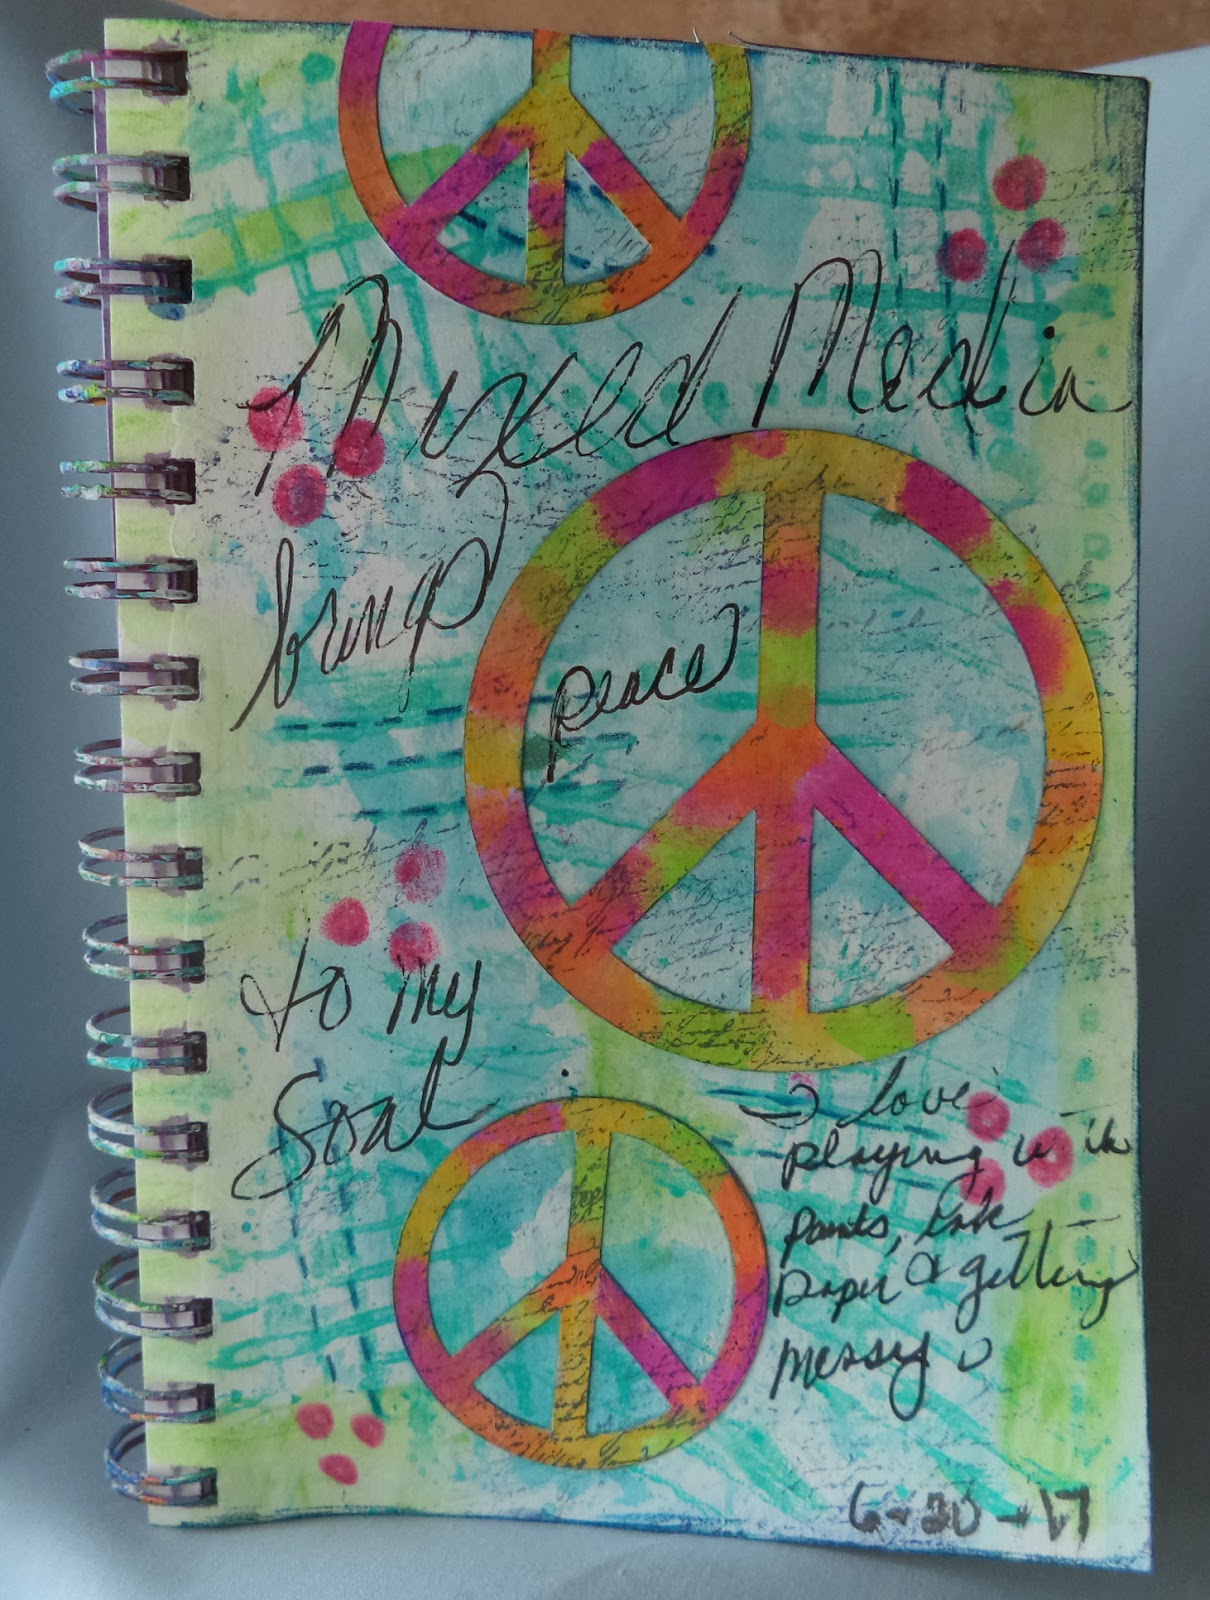 Mixed Media
brings
peace
to my
Soal
I love
playing w the
paints, ink
paper & getting
messy
6-20-17